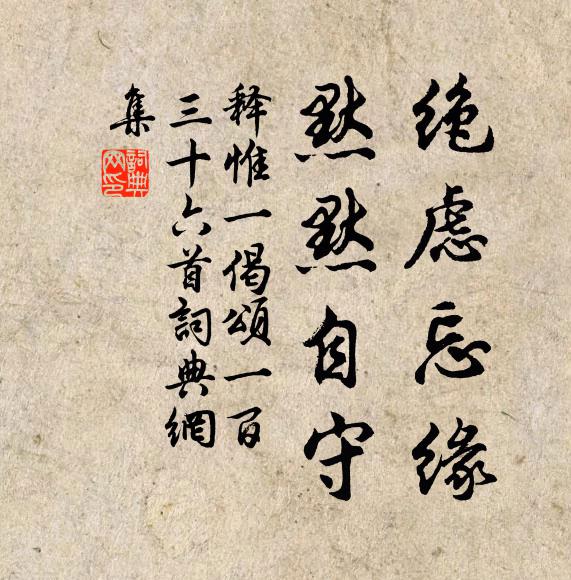 绝虑忘缘
默默自守
释惟一偈颂一百
三十六首詞典網
集
詞典網印